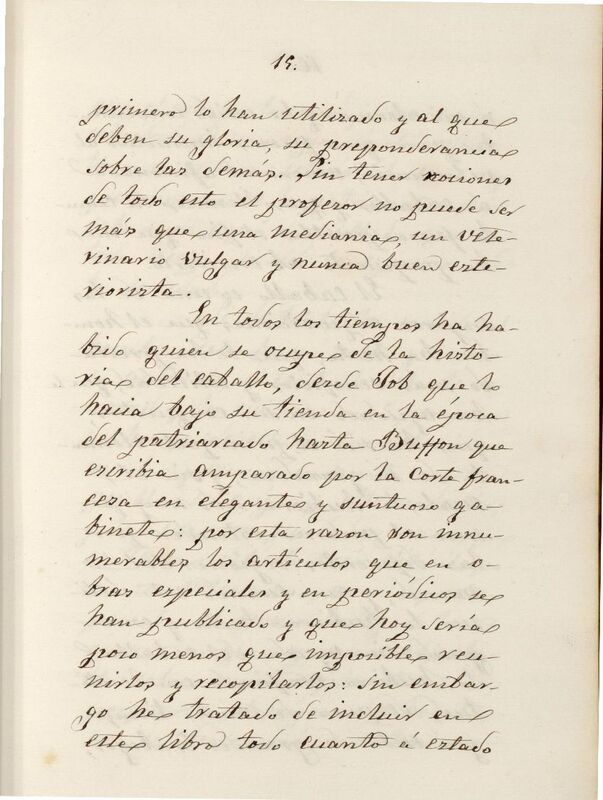 15.
primero lo han utilizado y al que
deben su gloria, su preponderancia
sobre las demás. Sin tener nociones
de todo esto el profesor no puede ser
más que una mediania, un vete-
rinario vulgar y nunca buen exte-
riorista.
En todos los tiempos ha ha-
bido quien se ocupe de la histo-
ria del caballo, desde Job que lo
hacia bajo su tienda en la época
del patriarcado hasta Buffon que
escribia amparado por la corte fran-
cesa en elegante y suntuoso ga-
binete: por esta razon son innu-
merables los artículos que en o-
bras especiales y en periódicos se
han publicado y que hoy sería
poco menos que imposible reu-
nirlos y recopilarlos: sin embar-
go he tratado de incluir en
este libro todo cuanto á estado